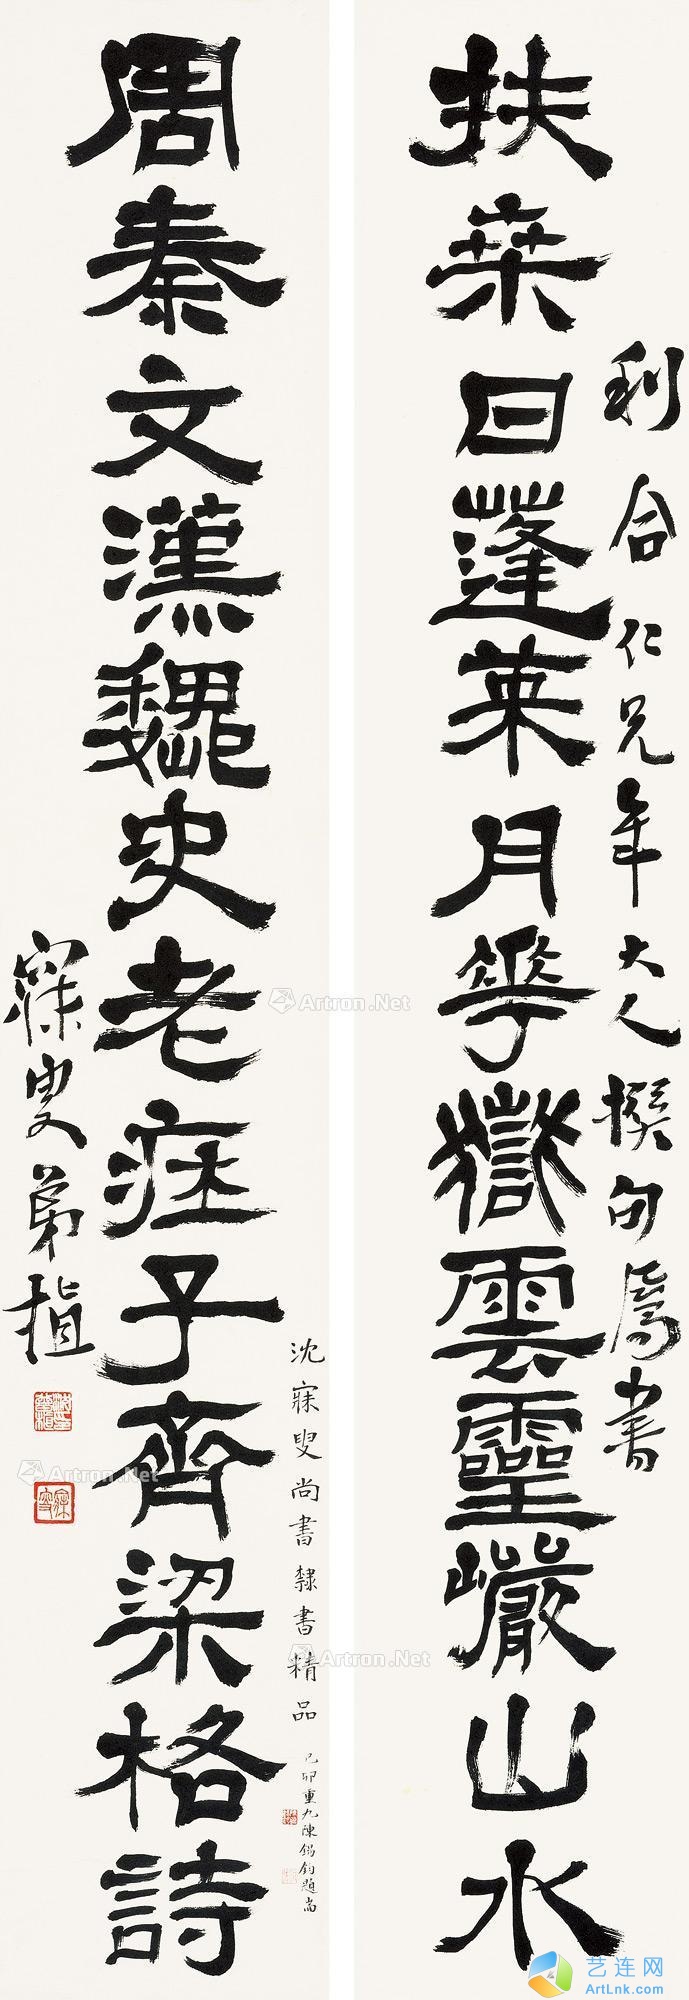 扶桒日蓬萊月華嶽雲靈巖山水
利合仁兄年大人撰句屬書
周秦文漢魏史老莊子齊梁格詩
寐叟弟植
沈寐叟尚書隸書精品
己卯重九陳錫鈞題耑
Artron.Net
Artron.Net
Artron.Net
Artron.Net
艺连网
ArtLnk.com